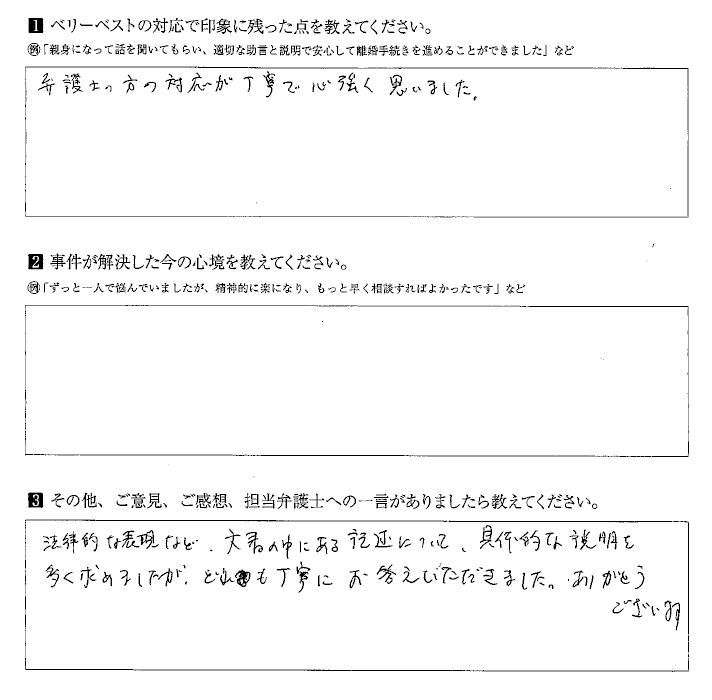 1 ベリーベストの対応で印象に残った点を教えてください。
例「親身になって話を聞いてもらい、適切な助言と説明で安心して離婚手続きを進めることができました」など
弁護士の方の対応が丁寧で心強く思いました。
2 事件が解決した今の心境を教えてください。
例「ずっと一人で悩んでいましたが、精神的に楽になり、もっと早く相談すればよかったです」など
3 その他、ご意見、ご感想、担当弁護士への一言がありましたら教えてください。
法律的な表現など、文書の中にある記述について、具体的な説明を
多く求めましたが、どれも丁寧にお答えいただきました。ありがとう
ございます